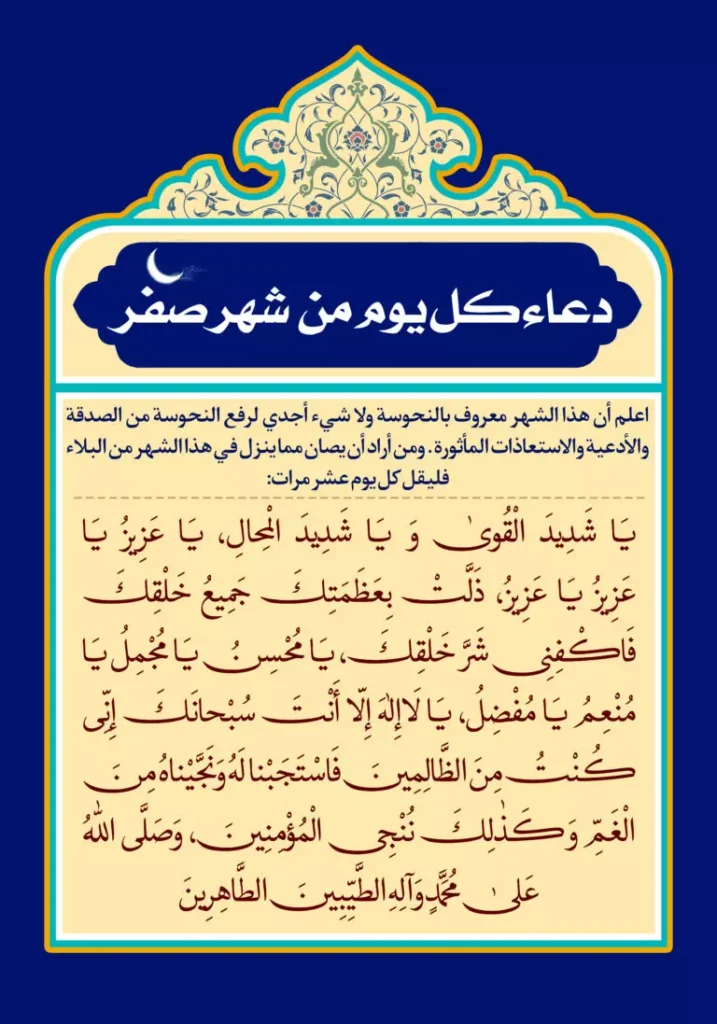 دعاء كل يوم من شهر صفر
اعلم أن هذا الشهر معروف بالنحوسة ولا شيء أجدي لرفع النحوسة من الصدقة
والأدعية والاستعاذات المأثورة. ومن أراد أن يصان مما ينزل في هذا الشهر من البلاء
فليقل كل يوم عشر مرات:
يَا شَدِيدَ الْقُوىٰ وَ يَا شَدِيدَ الْمِحالِ، يَا عَزِيزُ يَا
عَزِيزُ يَا عَزِيزُ، ذَلَّتْ بِعَظَمَتِكَ جَمِيعُ خَلْقِكَ
فَاكْفِنِى شَرَّ خَلْقِكَ، يَا مُحْسِنُ يَا مُجْمِلُ يَا
مُنْعِمُ يَا مُفْضِلُ، يَا لَاإِلٰهَ إِلّا أَنْتَ سُبْحانَكَ إِنِّى
كُنْتُ مِنَ الظَّالِمِينَ فَاسْتَجَبْنا لَهُ وَنَجَّيْناهُ مِنَ
الْغَمِّ وَكَذٰلِكَ نُنْجِى الْمُؤْمِنِينَ، وَصَلَّى اللّٰهُ
عَلىٰ مُحَمَّدٍ وَآلِهِ الطَّيِّبِينَ الطَّاهِرِينَ